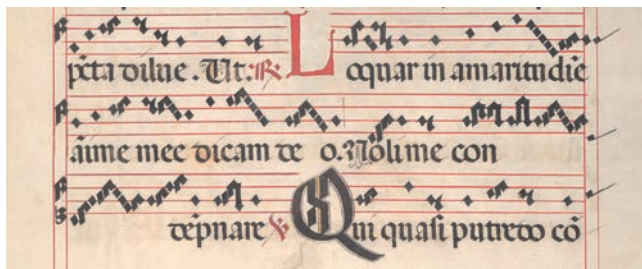 p̄cta diluē . Ut: ℟ Loquar in amaritudīe
āīme meē dicam deo. Noli me con
dēpnare ℣ Qui quasi putredo cō